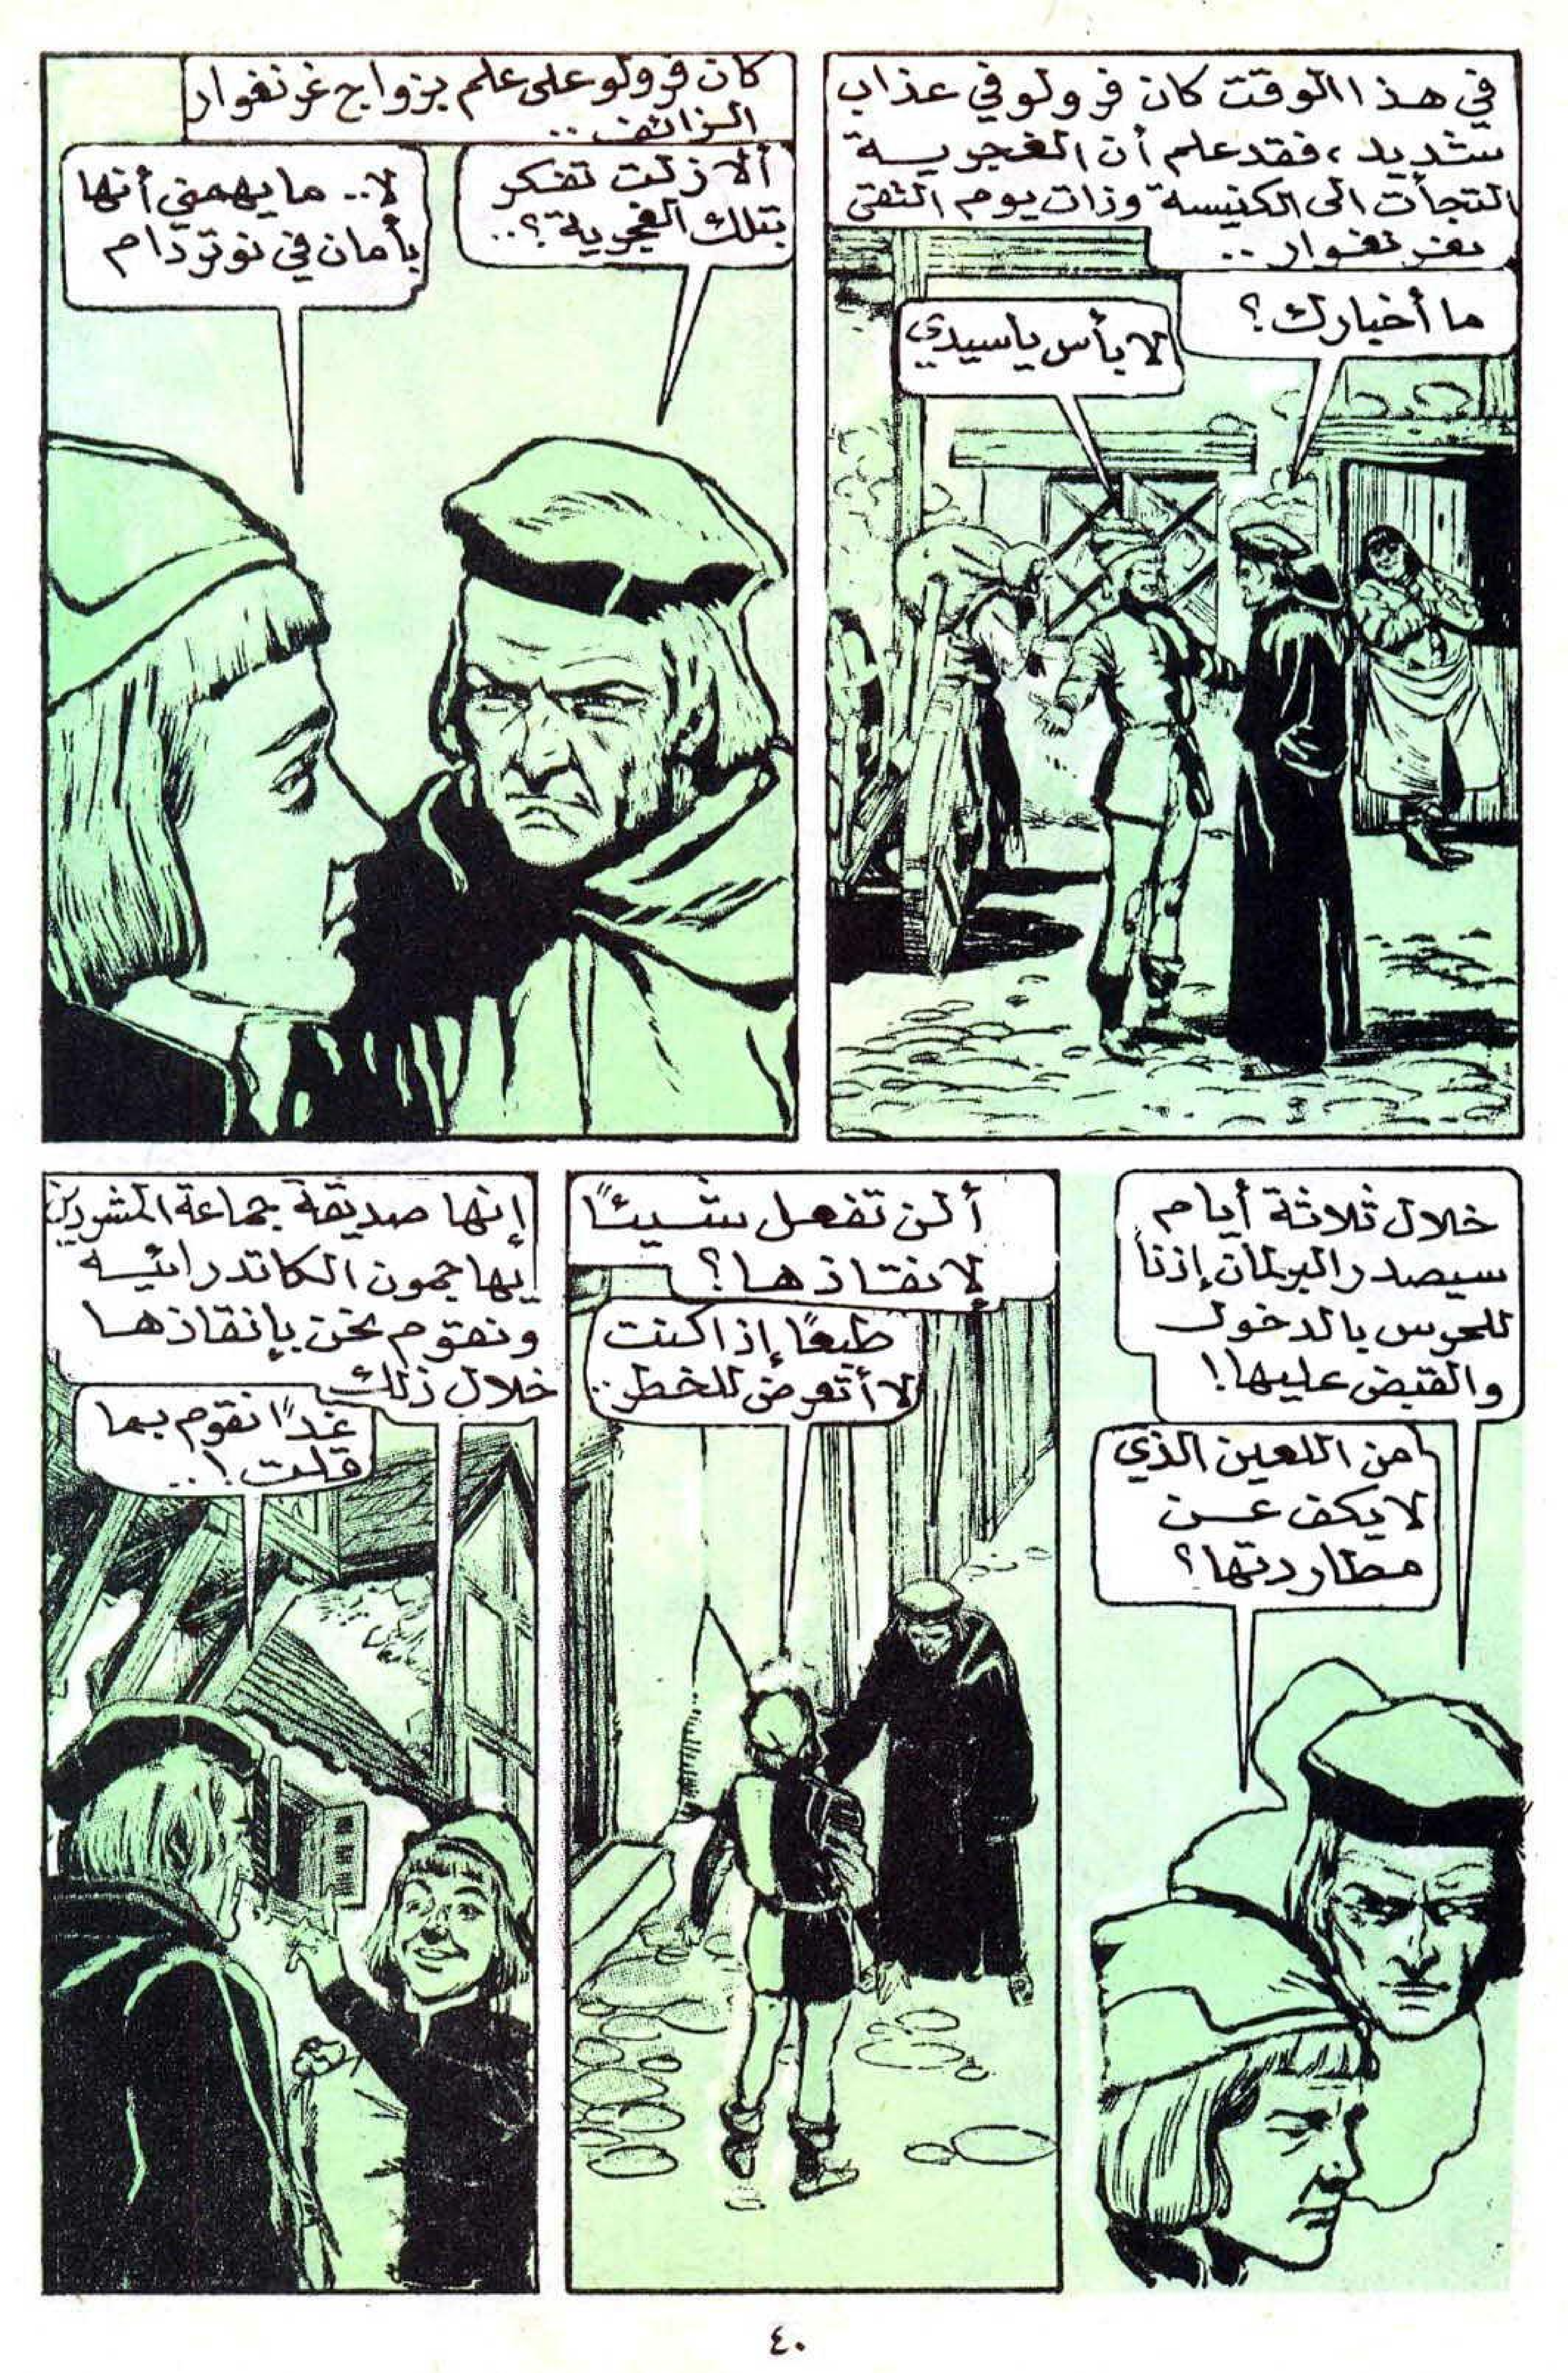 في هذا الوقت كان فرولو في عذاب
شديد، فقد علم أن الغجرية
التجأت الى الكنيسة وذات يوم التقى
بغرنغوار ..
ما أخبارك؟
لا بأس يا سيدي
كان فرولو على علم بزواج غرنغوار
الزائف ..
ألا زلت تفكر
بتلك الغجرية؟..
لا.. ما يهمني أنها
بأمان في نوتردام
خلال ثلاثة أيام
سيصدر البرلمان إذنا
للحرس بالدخول
والقبض عليها!
من اللعين الذي
لا يكف عن
مطاردتها؟
ألن تفعل شيئاً
لانقاذها؟
طبعاً إذا كنت
لا أتعرض للخطر..
إنها صديقة جماعة المشردين
يهاجمون الكاتدرائية
ونقوم نحن بإنقاذها
خلال ذلك
غداً نقوم بما
قلت!..
٤٠